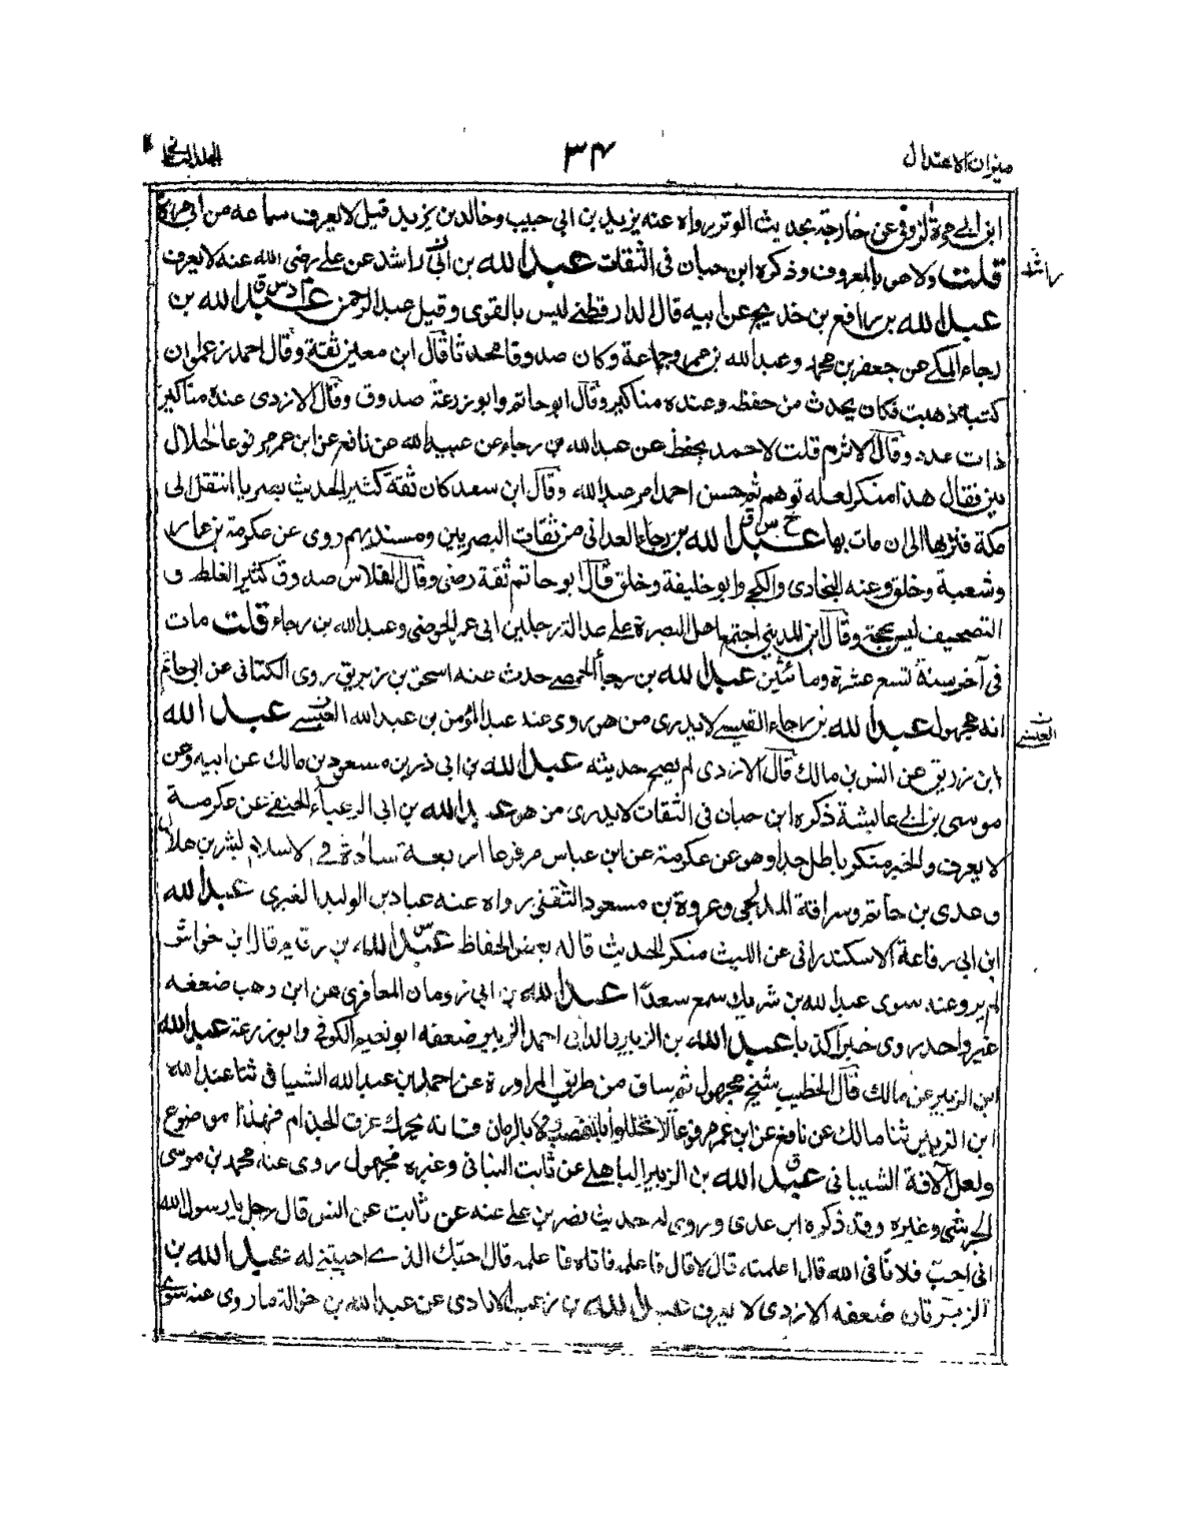 ميزان الاعتدال
٣٤
المجلد الثاني
ابن ابي مرة الزوفي عن خارجة بحديث الوتر رواه عنه يزيد بن ابي حبيب وخالد بن يزيد قيل لا يعرف سماعه من ابي مرة
قلت ولا هو بالمعروف وذكره ابن حبان في الثقات عبد الله بن ابي راشد عن علي رضي الله عنه لا يعرف
راشد
عبد الله بن رافع بن خديج عن ابيه قال الدارقطني ليس بالقوى وقيل عبد الرحمن م د س ق عبد الله بن
رجاء المكي عن جعفر بن محمد وعبد الله بن عمر وجماعة وكان صدوقا محدثا قال ابن معين ثقة وقال احمد زعموا ان
كتبه ذهبت فكان يحدث من حفظه وعنده مناكير وقال ابو حاتم وابو زرعة صدوق وقال الازدى عنده مناكير
ذات عدد وقال الاثرم قلت لاحمد يحفظ عن عبد الله بن رجاء عن عبيد الله عن نافع عن ابن عمر مرفوعا الحلال
بين فقال هذا منكر لعله توهم ثم حسن احمد امر عبد الله وقال ابن سعد كان ثقة كثير الحديث بصريا انتقل الى
مكة فنزلها الى ان مات بها خ س ق عبد الله بن رجاء الغداني من ثقات البصريين ومسنديهم روى عن عكرمة بن عمار
وشعبة وخلق وعنه البخارى والكجي وابو خليفة وخلق قال ابو حاتم ثقة رضى وقال الفلاس صدوق كثير الغلط و
التصحيف ليس بحجة وقال ابن المديني اجتمع اهل البصرة على عدالة رجلين ابي عمر الحوضي وعبد الله بن رجاء قلت مات
في آخر سنة تسع عشرة ومائتين عبد الله بن رجاء الحمصي حدث عنه اسحق بن زبريق روى الكتاني عن ابي حاتم
انه مجهول عبد الله بن رجاء القيسي لا يدرى من هو روى عنه عبد المؤمن بن عبد الله العبسي عبد الله
العبسي
ابن زريق عن انس بن مالك قال الازدى لم يصح حديثه عبد الله بن ابي ذر بن مسعود بن مالك عن ابيه وعن
موسى بن ابي عائشة ذكره ابن حبان في الثقات لا يدرى من هو عبد الله بن ابي الرعباء الحنفي عن عكرمة
لا يعرف والخبر منكر باطل جدا وهو عن عكرمة عن ابن عباس مرفوعا اربعة سادة في الاسلام بشر بن هلال
وعدى بن حاتم وسراقة المدلجى وعروة بن مسعود الثقفى رواه عنه عباد بن الوليد الغبرى عبد الله
ابن ابي رفاعة الاسكندرانى عن الليث منكر الحديث قاله بعض الحفاظ س عبد الله بن رقيم قال ابن خراش
لم يرو عنه سوى عبد الله بن شريك سمع سعدا عبد الله بن ابي رومان المعافرى عن ابن وهب ضعفه
غير واحد روى خبرا كذبا عبد الله بن الزبير والد ابي احمد الزبيرى ضعفه ابو نعيم الكوفي وابو زرعة عبد الله
ابن الزبير عن مالك قال الخطيب شيخ مجهول ثم ساق من طريق المراورة عن احمد بن عبد الله الشيبانى ثنا عبد الله
ابن الزبير ثنا مالك عن نافع عن ابن عمر مرفوعا لا تخللوا بالقصب ولا بالرمان فانه يحرك عرق الجذام فهذا موضوع
ولعل الآفة الشيبانى ق عبد الله بن الزبير الباهلي عن ثابت البنانى وغيره مجهول روى عنه محمد بن موسى
الحرشي وغيره وقد ذكره ابن عدى وروى له حديث نصر بن علي عنه عن ثابت عن انس قال رجل يا رسول الله
انى احب فلانا في الله قال اعلمته قال لا قال فاعلمه فاتاه فاعلمه قال احبك الذى احببتني له عبد الله بن
الزبرقان ضعفه الازدى لا يعرف عبد الله بن زغب الايادى عن عبد الله بن حوالة ما روى عنه سوى